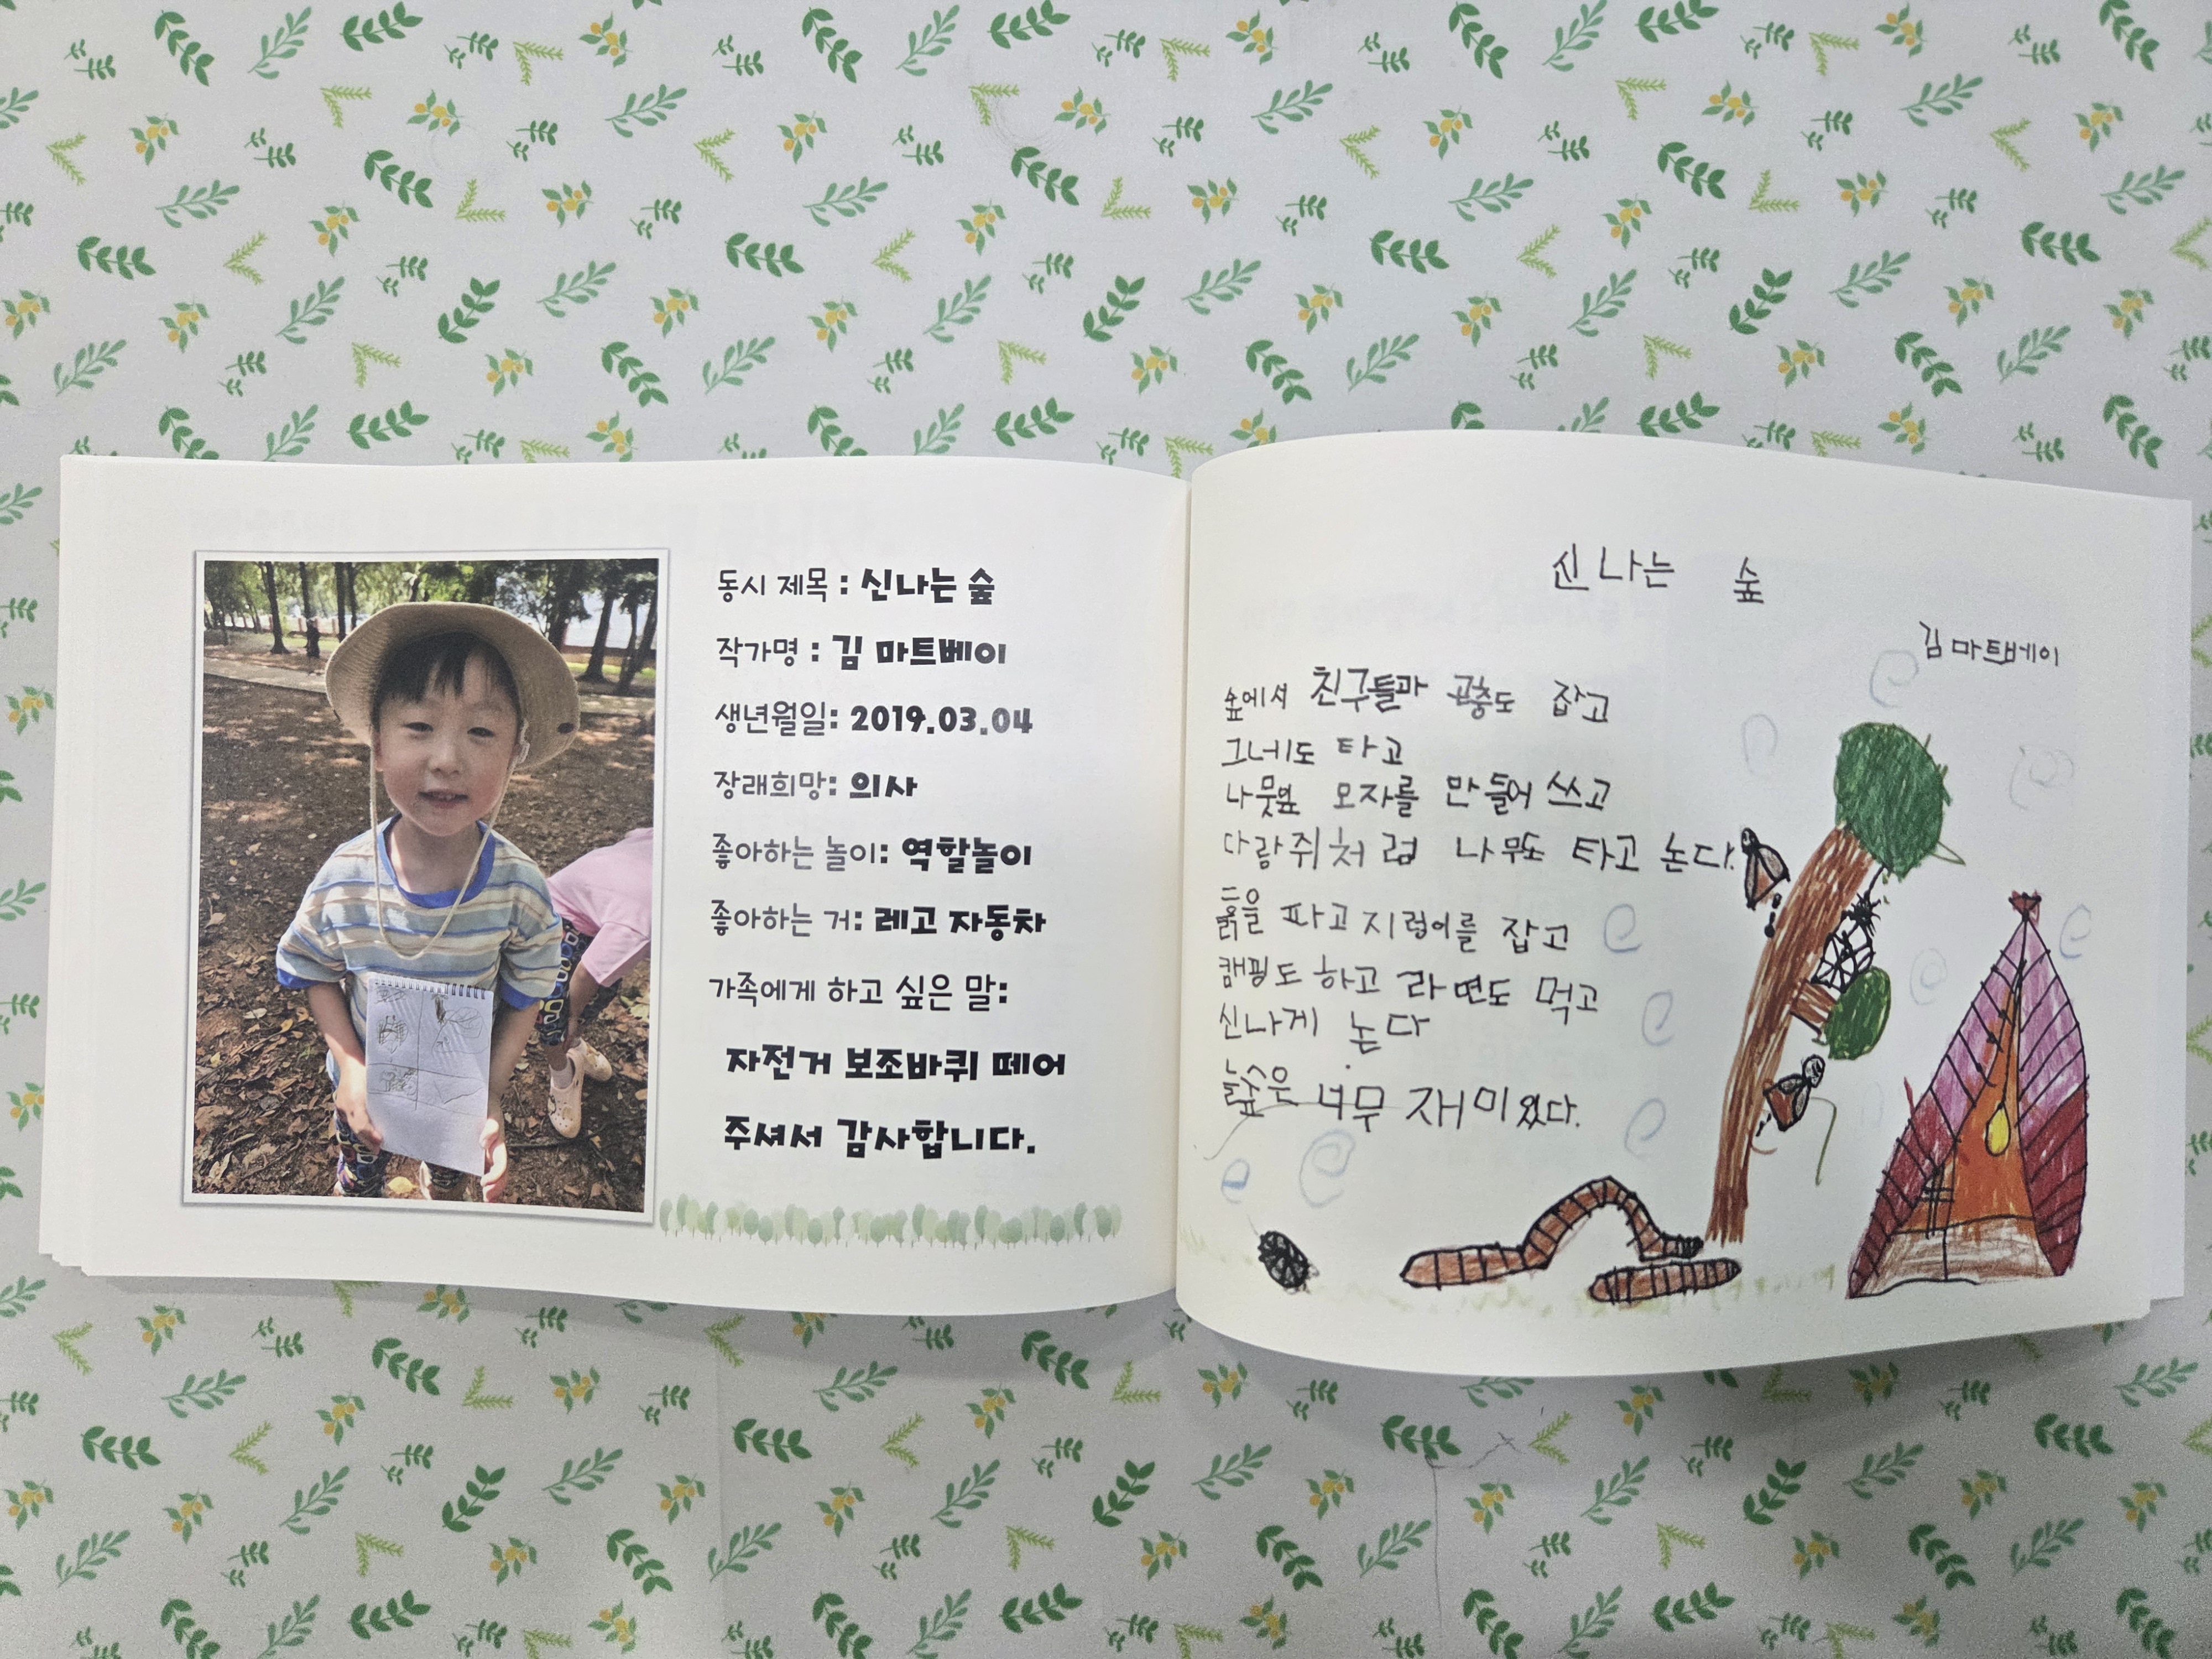 동시 제목 : 신나는 숲
작가명 : 김 마트베이
생년월일: 2019.03.04
장래희망: 의사
좋아하는 놀이: 역할놀이
좋아하는 거: 레고 자동차
가족에게 하고 싶은 말:
자전거 보조바퀴 떼어
주셔서 감사합니다.
신나는 숲
김 마트베이
숲에서 친구들과 곤충도 잡고
그네도 타고
나뭇잎 모자를 만들어 쓰고
다람쥐처럼 나무도 타고 논다.
흙을 파고 지렁이를 잡고
캠핑도 하고 라면도 먹고
신나게 논다
숲은 너무 재미있다.